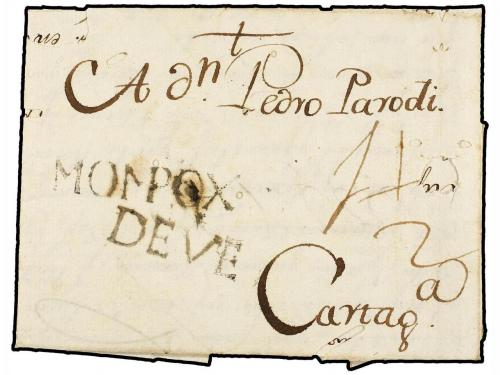 A Dn. Pedro Parodi.
MOMPOX
DEVE
Cartaga.